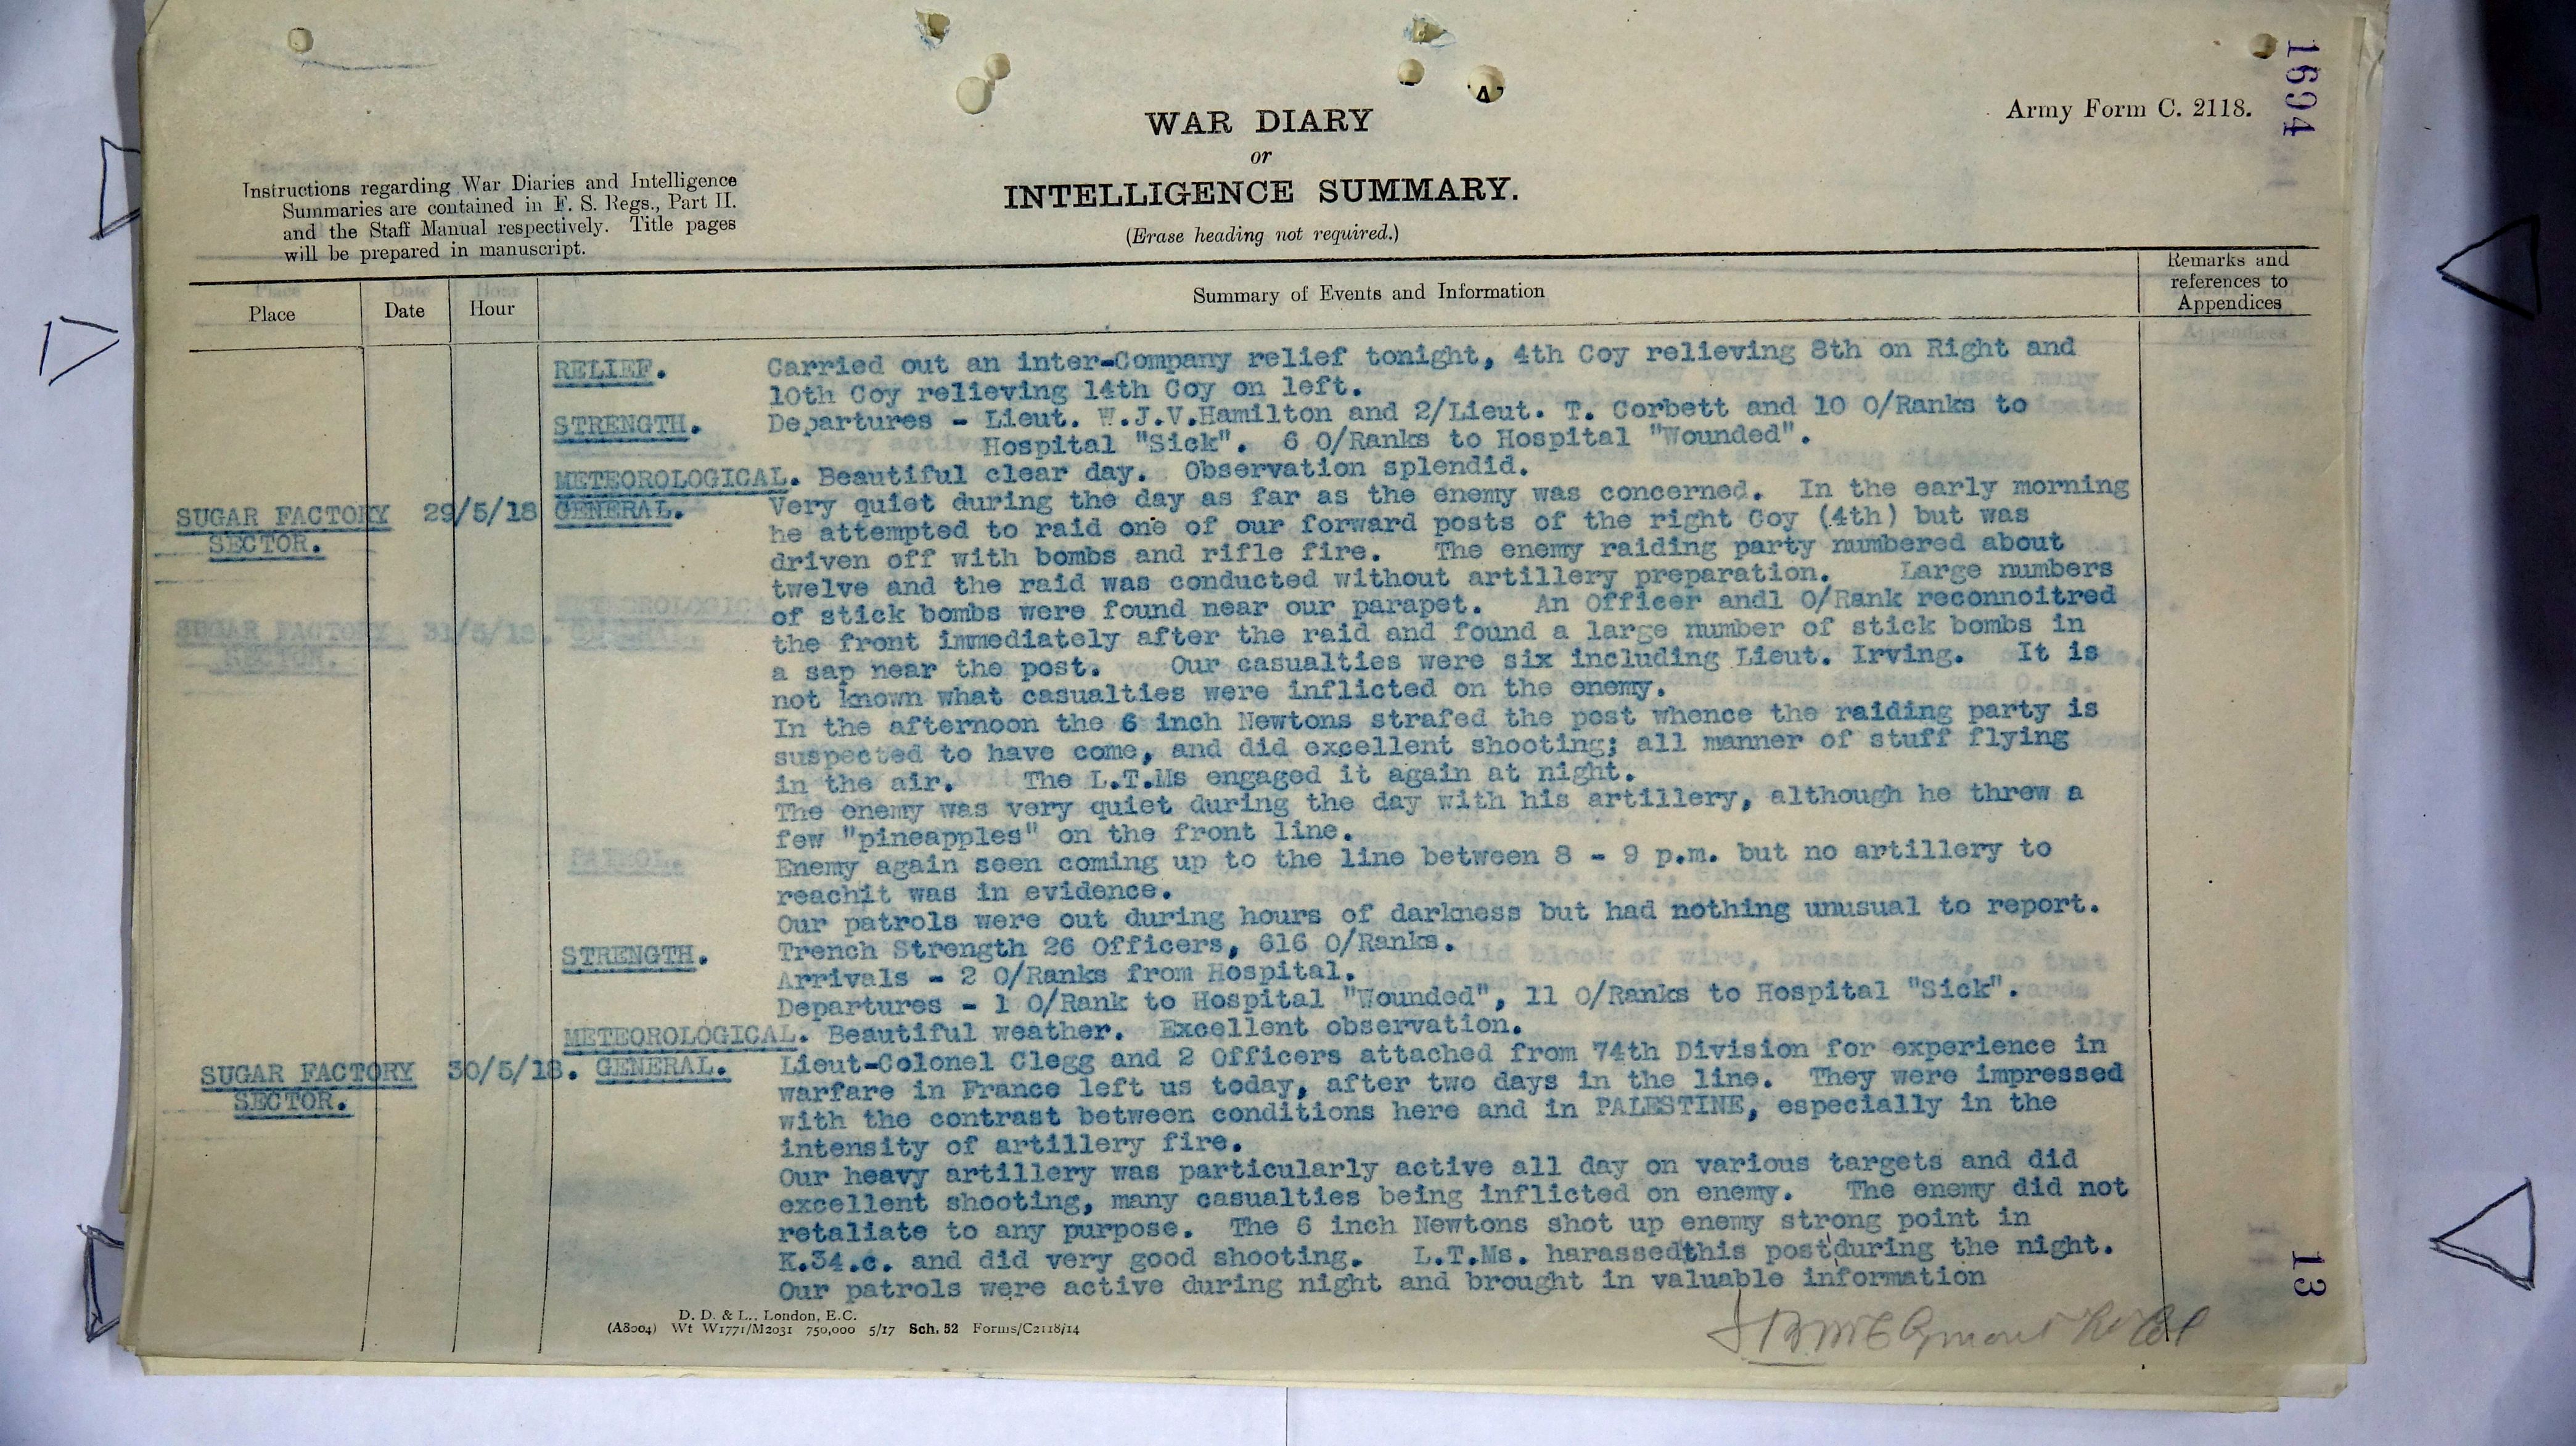 1694
Army Form C. 2118.
WAR DIARY
or
INTELLIGENCE SUMMARY.
(Erase heading not required.)
Instructions regarding War Diaries and Intelligence
Summaries are contained in F. S. Regs., Part II.
and the Staff Manual respectively. Title pages
will be prepared in manuscript.
Place Date Hour Summary of Events and Information Remarks and
references to
Appendices
RELIEF. Carried out an inter-Company relief tonight, 4th Coy relieving 8th on Right and
10th Coy relieving 14th Coy on left.
STRENGTH. Departures - Lieut. W.J.V.Hamilton and 2/Lieut. T. Corbett and 10 O/Ranks to
Hospital "Sick". 6 O/Ranks to Hospital "Wounded".
METEOROLOGICAL. Beautiful clear day. Observation splendid.
SUGAR FACTORY 29/5/18 GENERAL. Very quiet during the day as far as the enemy was concerned. In the early morning
SECTOR. he attempted to raid one of our forward posts of the right Coy (4th) but was
driven off with bombs and rifle fire. The enemy raiding party numbered about
twelve and the raid was conducted without artillery preparation. Large numbers
of stick bombs were found near our parapet. An Officer and1 O/Rank reconnoitred
the front immediately after the raid and found a large number of stick bombs in
a sap near the post. Our casualties were six including Lieut. Irving. It is
not known what casualties were inflicted on the enemy.
In the afternoon the 6 inch Newtons strafed the post whence the raiding party is
suspected to have come, and did excellent shooting; all manner of stuff flying
in the air. The L.T.Ms engaged it again at night.
The enemy was very quiet during the day with his artillery, although he threw a
few "pineapples" on the front line.
Enemy again seen coming up to the line between 8 - 9 p.m. but no artillery to
reachit was in evidence.
Our patrols were out during hours of darkness but had nothing unusual to report.
STRENGTH. Trench Strength 26 Officers, 616 O/Ranks.
Arrivals - 2 O/Ranks from Hospital.
Departures - 1 O/Rank to Hospital "Wounded", 11 O/Ranks to Hospital "Sick".
METEOROLOGICAL. Beautiful weather. Excellent observation.
SUGAR FACTORY 30/5/18. GENERAL. Lieut-Colonel Clegg and 2 Officers attached from 74th Division for experience in
SECTOR. warfare in France left us today, after two days in the line. They were impressed
with the contrast between conditions here and in PALESTINE, especially in the
intensity of artillery fire.
Our heavy artillery was particularly active all day on various targets and did
excellent shooting, many casualties being inflicted on enemy. The enemy did not
retaliate to any purpose. The 6 inch Newtons shot up enemy strong point in
K.34.c. and did very good shooting. L.T.Ms. harassedthis postduring the night.
Our patrols were active during night and brought in valuable information
D. D. & L., London, E.C.
(A8004) Wt W1771/M2031 750,000 5/17 Sch. 52 Forms/C2118/14
13